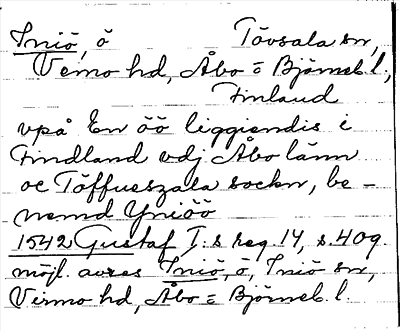 Iniö, ö Tövsala sn,
Vemo hd, Åbo = Björneb. l.,
Finland
vpå En öö liggiendis i
Findland vdj Åbo länn
oc Töffueszala sockn, be-
nemd Yniöö
1542 Gustaf I:s reg. 14, s. 409.
möjl. avses Iniö, ö, Iniö sn,
Virmo hd, Åbo = Björneb. l.